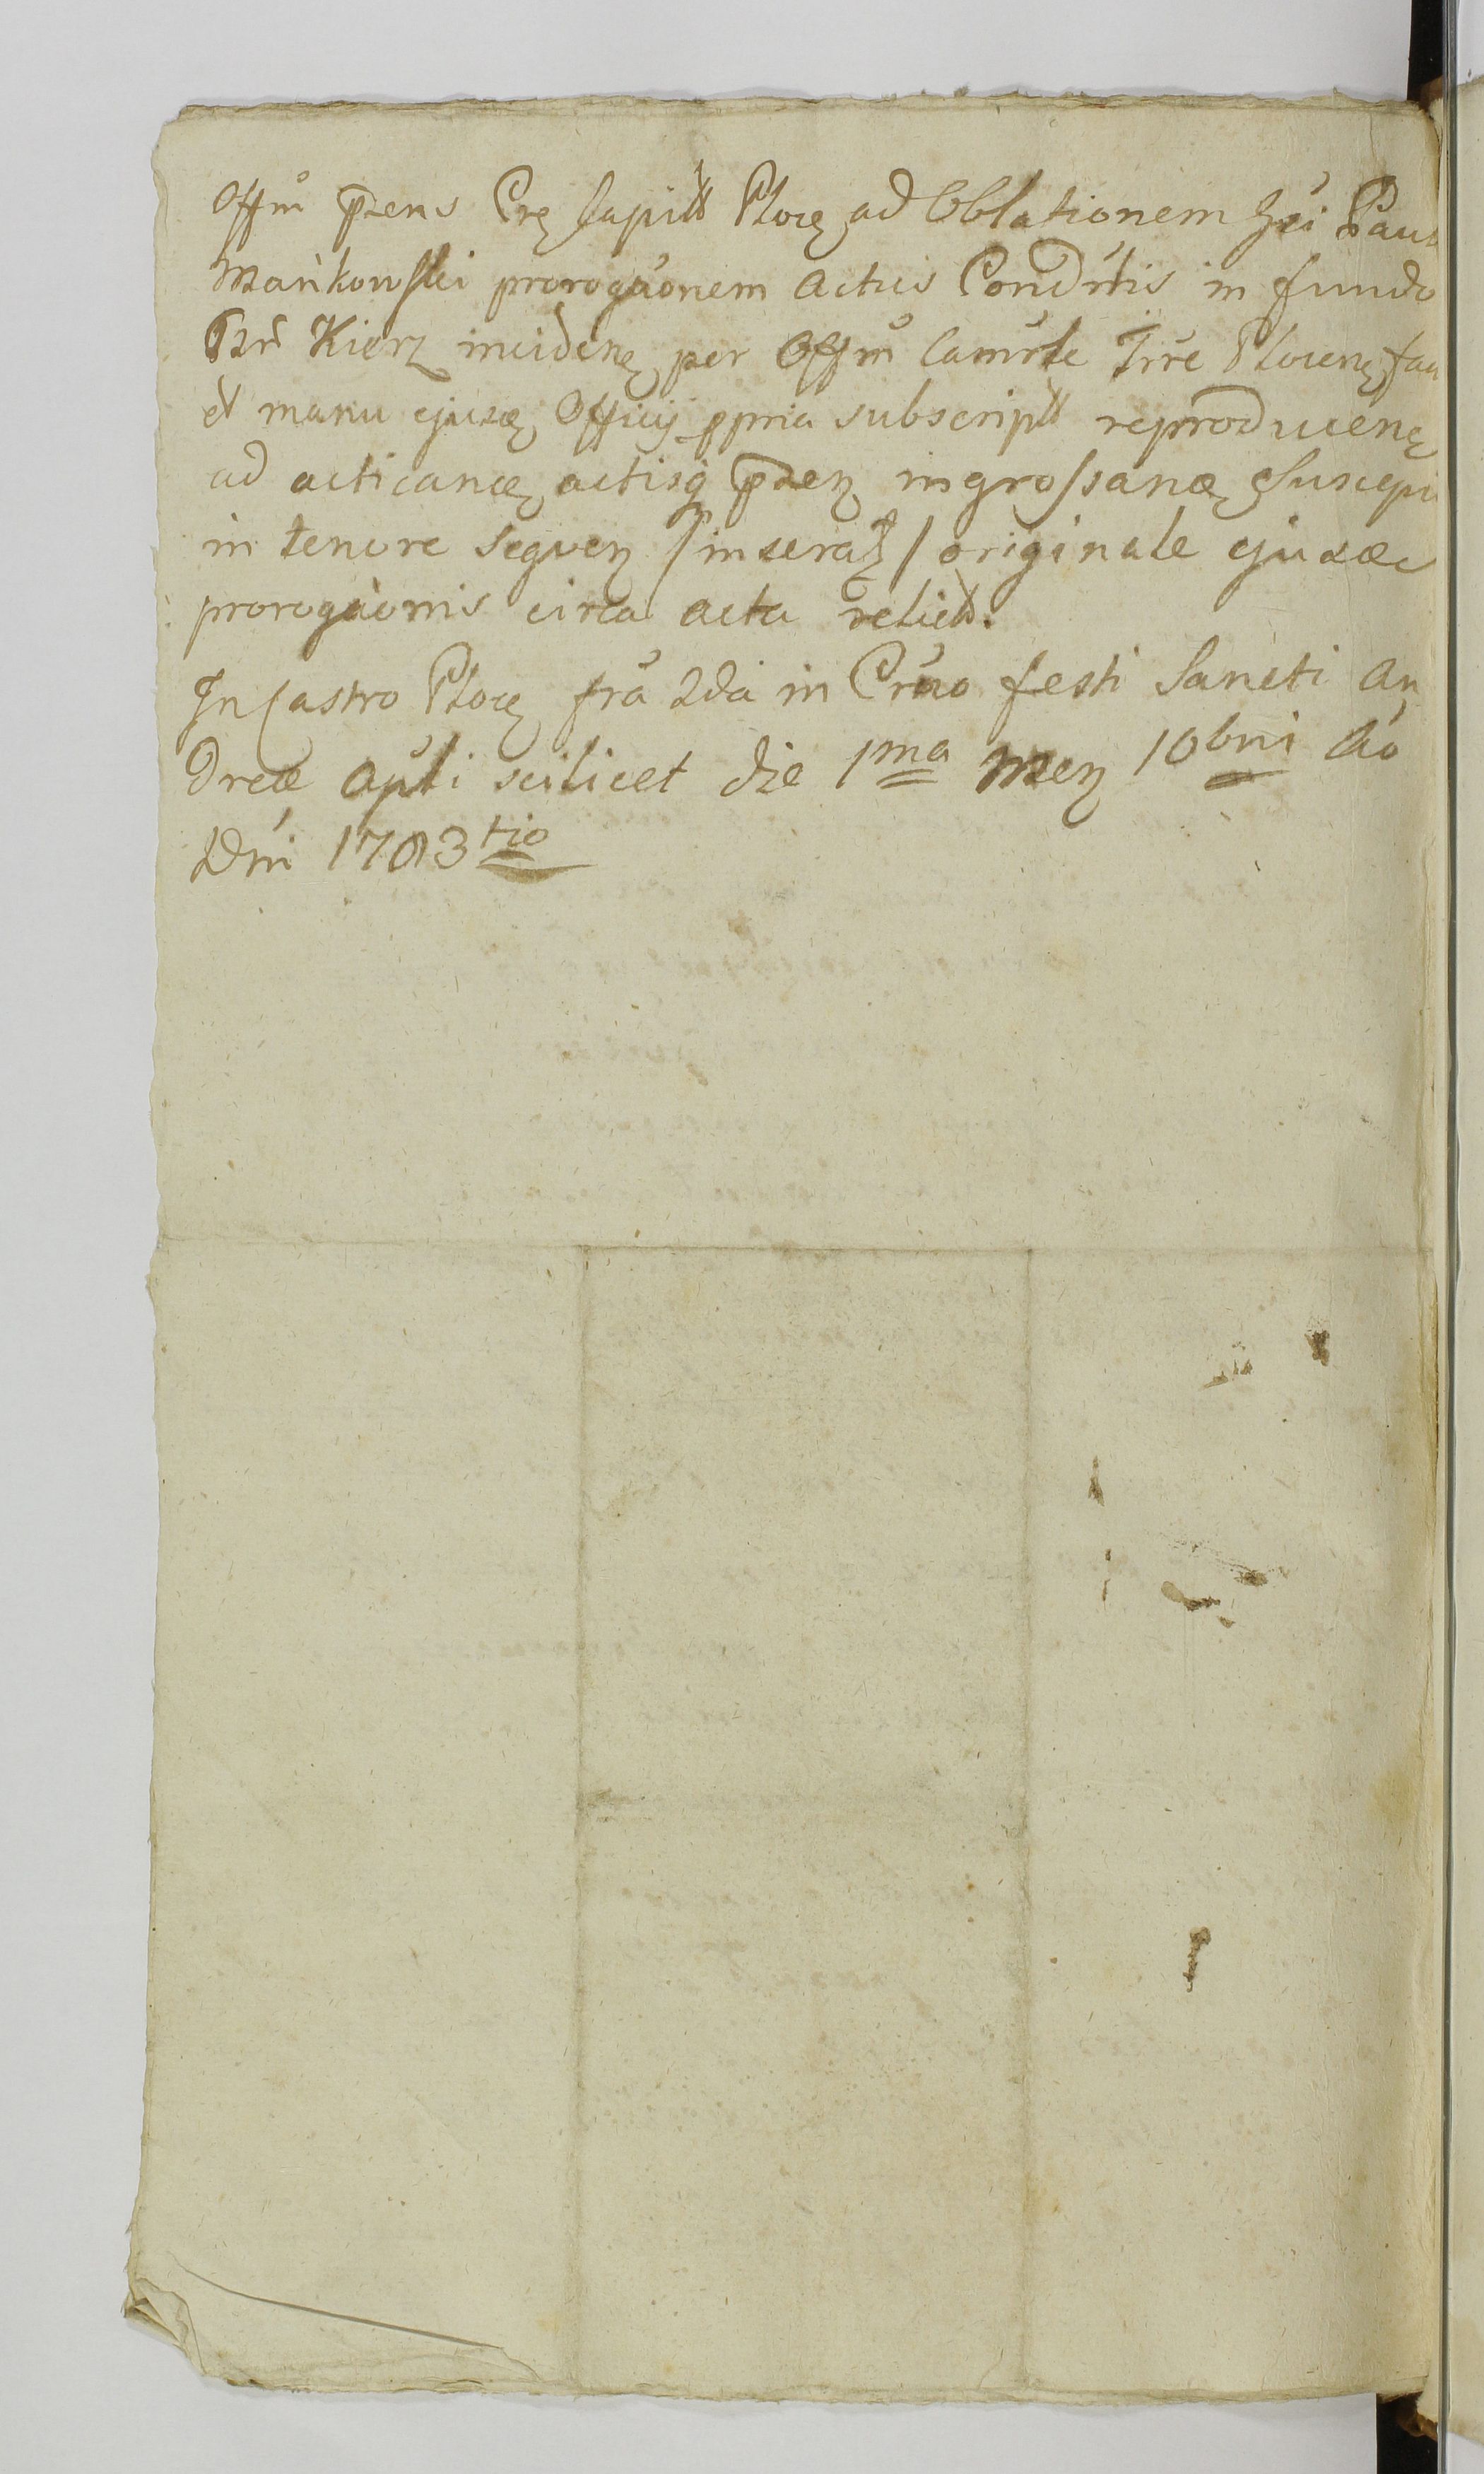 Offm̊ pzens Crę Capitt Plocę ad Oblationem Gsi Pau
Mańkowski prorogãonem actus Condrtis in fundo
Bzr̃ Kierz incidenę per Offm̊ Camrle Trre Plocenę fac
et manu ejuzdę Officij ppria subscriptt reproducenę
ad acticandę actisq pzenʒ ingrossandę Suscepi
in tenore seqvenʒ /inseraʒ/ originale ejuzdę
prorogãonis circa acta relict.
In Castro Plocę fra 2da in Crno festi Sancti An
dreæ Apli scilicet die 1ma Menʒ 10bri Ao
Dni 1783tio